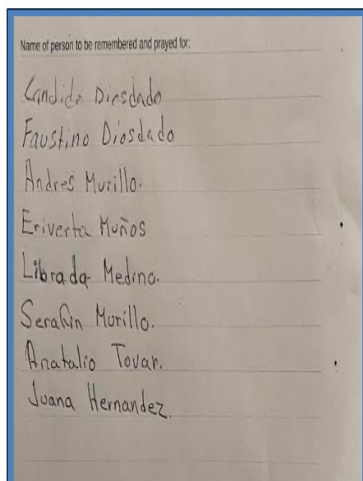 Name of person to be remembered and prayed for:
Candido Diosdado
Faustino Diosdado
Andres Murillo.
Eriverta Muños
Librada Medina.
Serafin Murillo.
Anatalio Tovar.
Juana Hernandez.